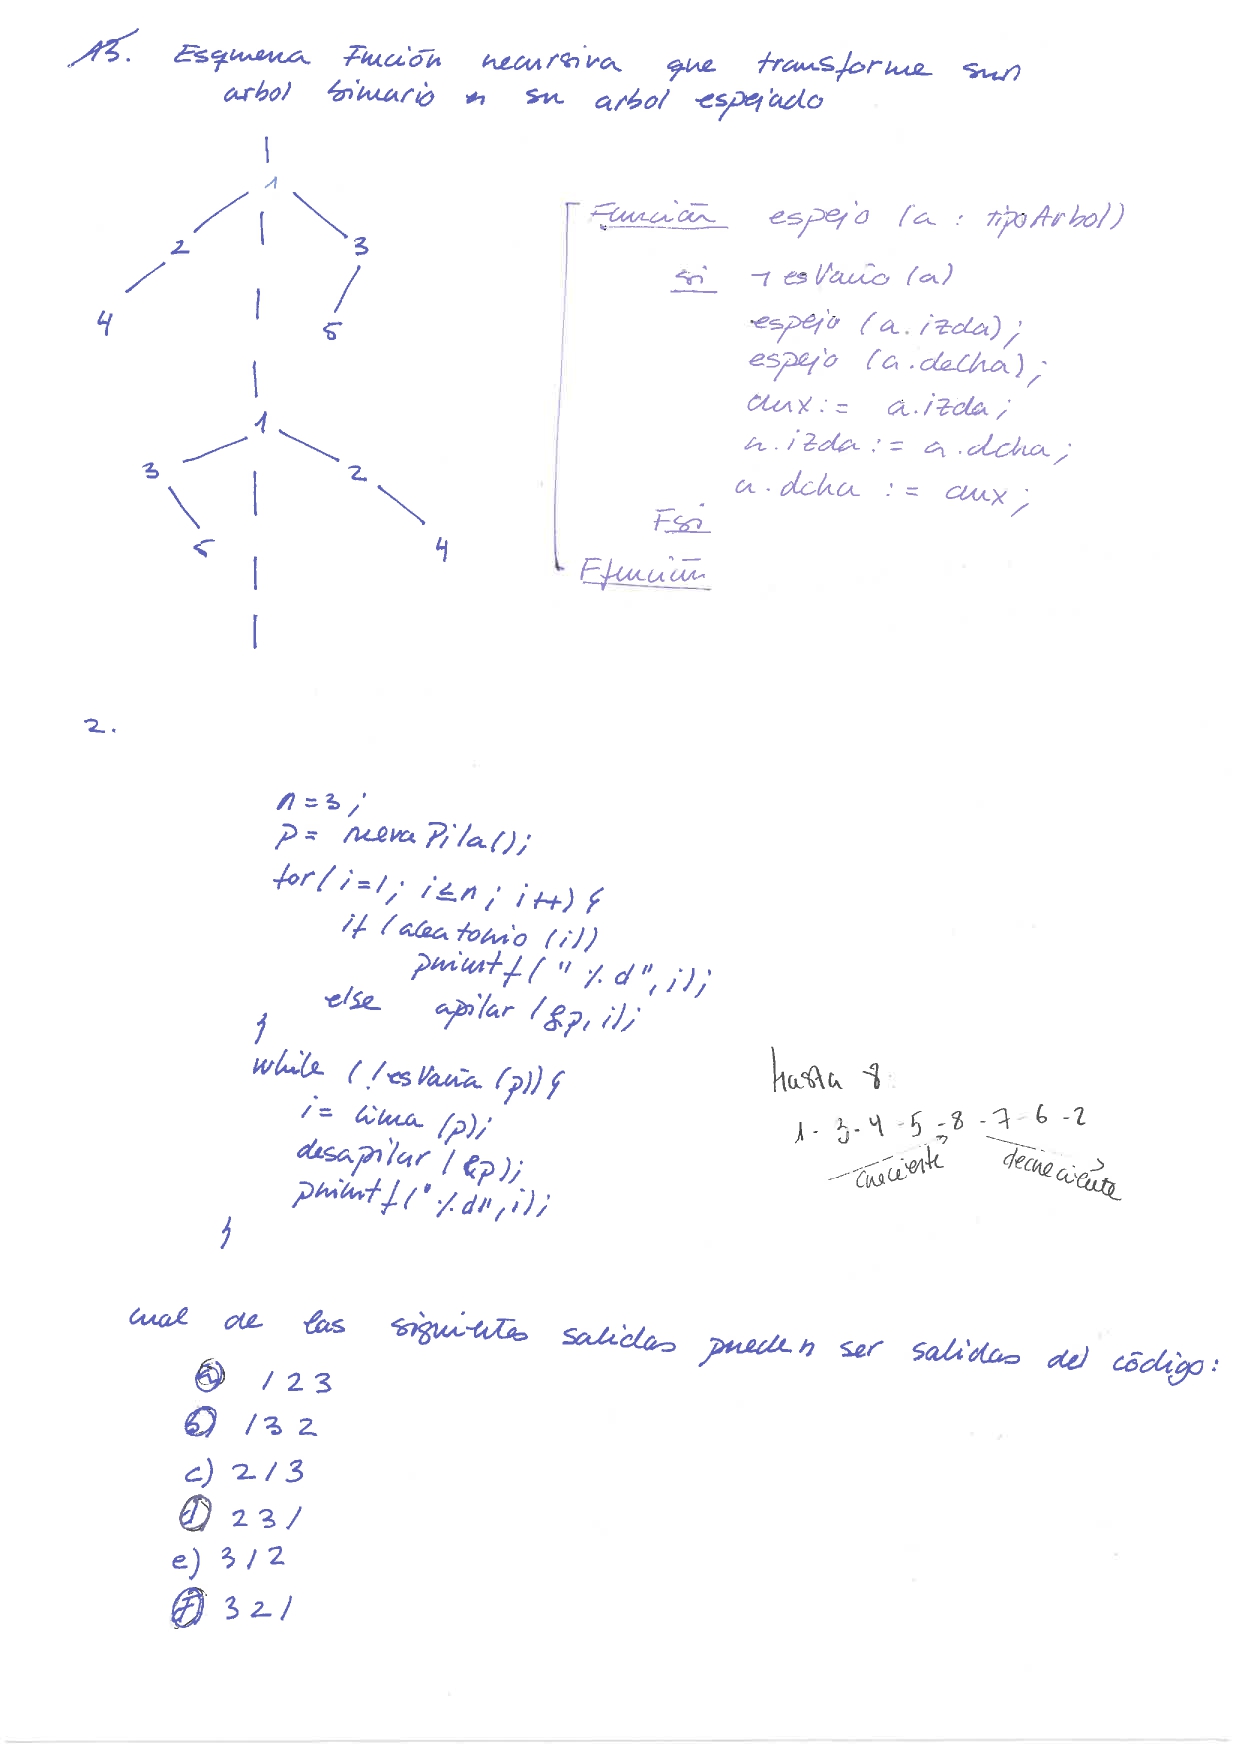 13. Esquema Función recursiva que transforme un
arbol binario en su arbol espejado
1
2 3
4 5
1
3 2
5 4
Función espejo (a : tipoArbol)
si ¬ esVacio (a)
espejo (a.izda);
espejo (a.decha);
aux := a.izda;
a.izda := a.dcha;
a.dcha := aux;
Fsi
Efunción
2.
n=3;
p= nuevaPila();
for(i=1; i≤n; i++) {
if (aleatorio (i))
printf(" %d", i);
else apilar (&p, i);
}
while (!esVacia (p)) {
i= cima (p);
desapilar (&p);
printf("%d", i);
}
hasta 8
1 - 3 - 4 - 5 - 8 - 7 - 6 - 2
creciente decreciente
cual de las siguientes salidas pueden ser salidas del código:
a) 1 2 3
b) 1 3 2
c) 2 1 3
d) 2 3 1
e) 3 1 2
f) 3 2 1